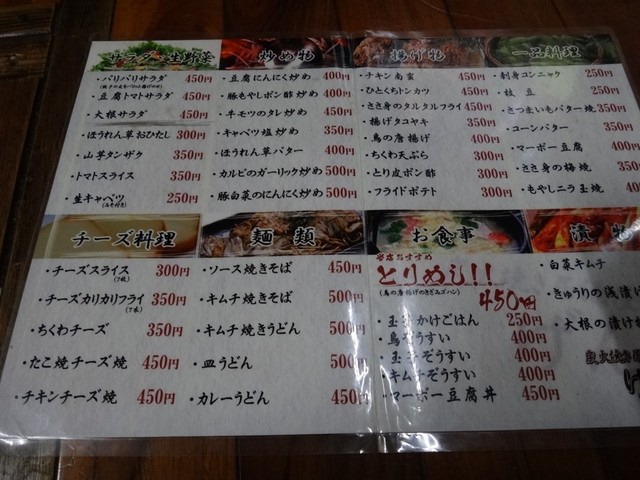 サラダ・生野菜
・パリパリサラダ 450円
・豆腐トマトサラダ 450円
・大根サラダ 450円
・ほうれん草おひたし 300円
・山芋タンザク 350円
・トマトスライス 350円
・生キャベツ 250円
(みそ付き)
炒め物
・豆腐にんにく炒め 400円
・豚もやしポン酢炒め 400円
・牛モツのタレ炒め 450円
・キャベツ塩炒め 350円
・ほうれん草バター 400円
・カルビのガーリック炒め 500円
・豚白菜のにんにく炒め 500円
揚げ物
・チキン南蛮 450円
・ひとくちトンカツ 450円
・ささ身のタルタルフライ 450円
・揚げタコヤキ 350円
・鳥の唐揚げ 400円
・ちくわ天ぷら 300円
・とり皮ポン酢 300円
・フライドポテト 300円
一品料理
・刺身コンニャク 250円
・枝豆 250円
・さつまいもバター焼 350円
・コーンバター 350円
・マーボー豆腐 400円
・ささ身の梅焼 350円
・もやしニラ玉焼 400円
チーズ料理
・チーズスライス 300円
(7枚)
・チーズカリカリフライ 350円
(7本)
・ちくわチーズ 350円
・たこ焼チーズ焼 450円
・チキンチーズ焼 450円
麺類
・ソース焼きそば 450円
・キムチ焼きそば 500円
・キムチ焼きうどん 500円
・皿うどん 500円
・カレーうどん 450円
お食事
当店おすすめ
とりめし!!
(鳥の唐揚げのきざみゴハン)
450円
・玉子かけごはん 250円
・鳥ぞうすい 400円
・玉子ぞうすい 400円
・キムチぞうすい 400円
・マーボー豆腐丼 450円
漬物
・白菜キムチ
・きゅうりの浅漬け
・大根の漬け